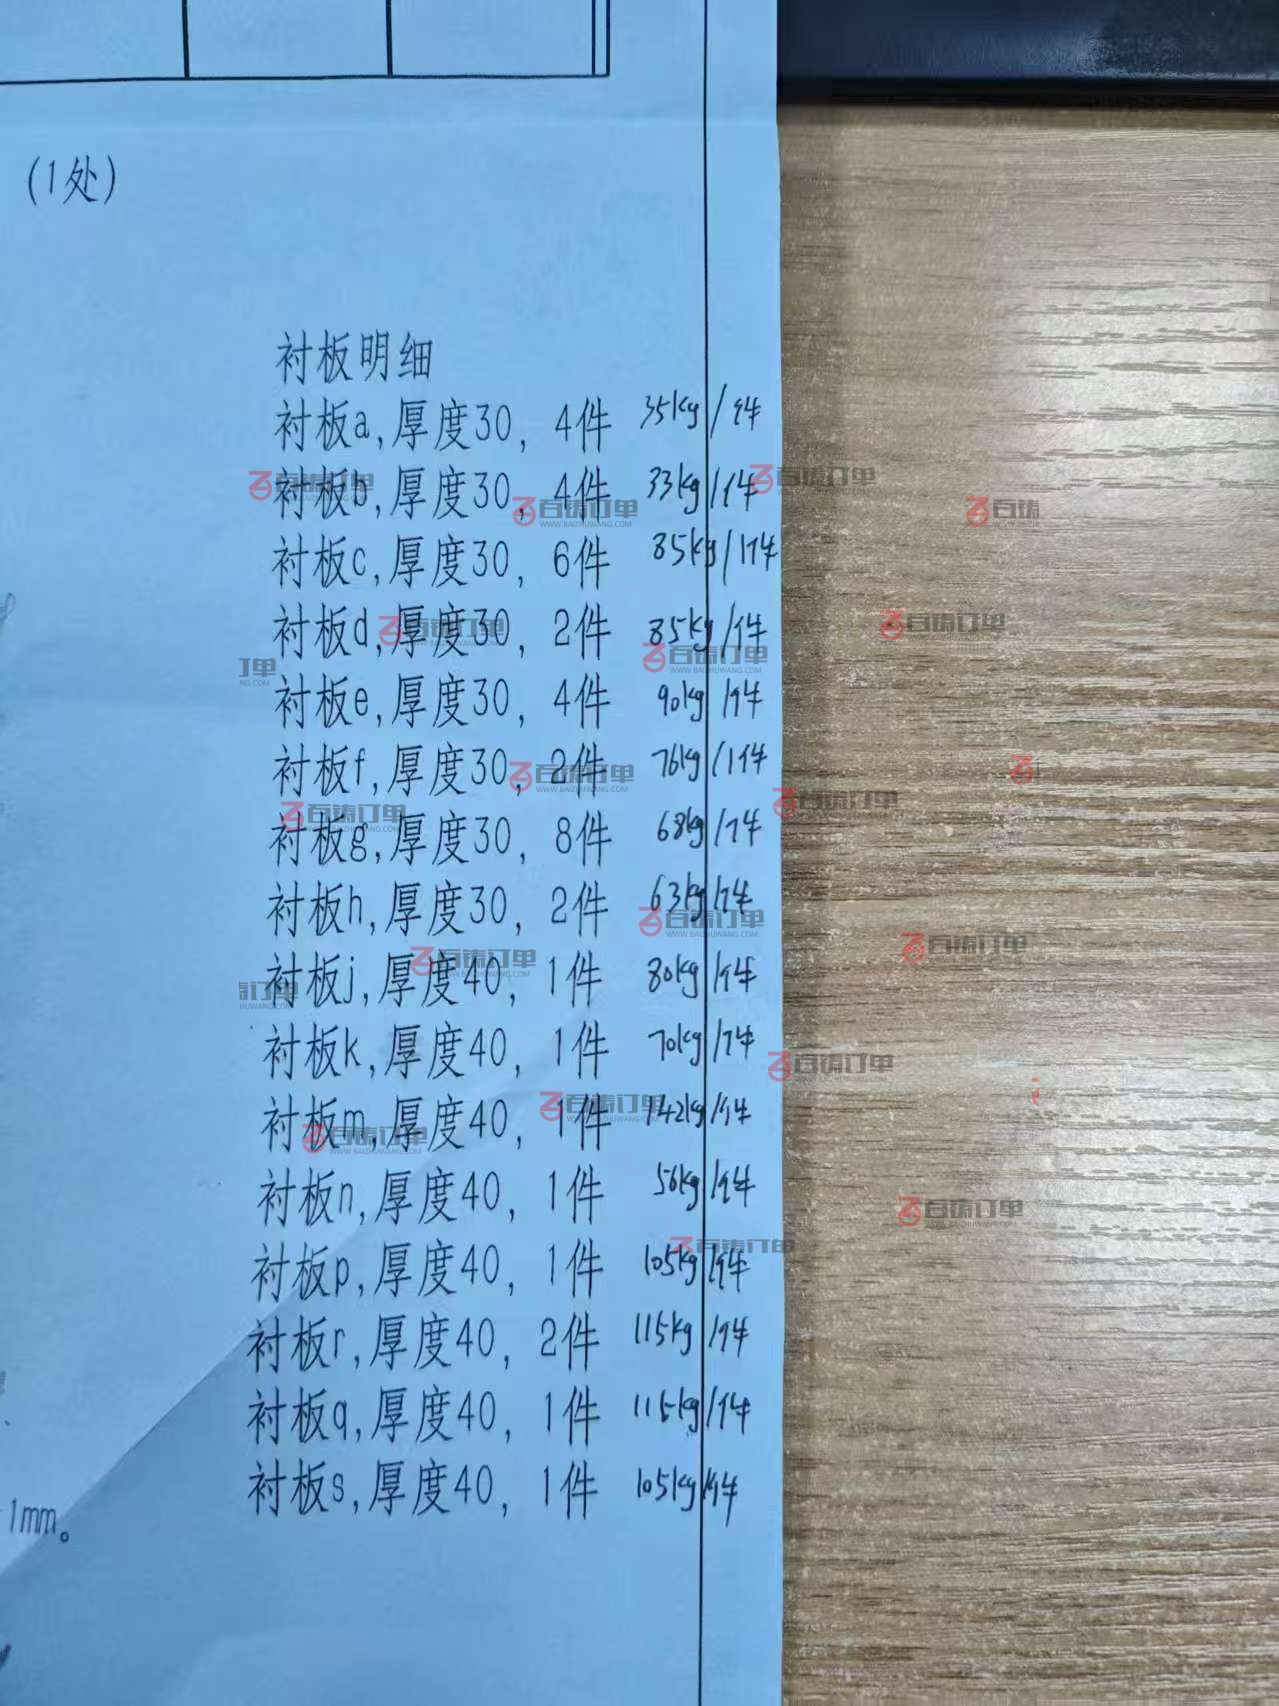 (1处)
衬板明细
衬板a,厚度30, 4件 35kg/件
衬板b,厚度30, 4件 33kg/件
衬板c,厚度30, 6件 85kg/件
衬板d,厚度30, 2件 85kg/件
衬板e,厚度30, 4件 90kg/件
衬板f,厚度30, 2件 76kg/件
衬板g,厚度30, 8件 68kg/件
衬板h,厚度30, 2件 63kg/件
衬板j,厚度40, 1件 80kg/件
衬板k,厚度40, 1件 70kg/件
衬板m,厚度40, 1件 142kg/件
衬板n,厚度40, 1件 56kg/件
衬板p,厚度40, 1件 105kg/件
衬板r,厚度40, 2件 115kg/件
衬板q,厚度40, 1件 115kg/件
衬板s,厚度40, 1件 105kg/件
1mm。
百铸订单
WWW.BAIZHUWANG.COM